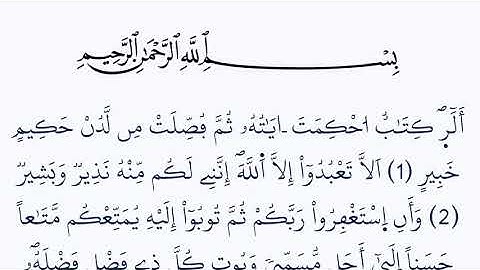 بِسْمِ اللَّهِ الرَّحْمَٰنِ الرَّحِيمِ
أَلَٓرۖ كِتَٰبٌ ا۟حْكِمَتَ ـ ايَٰتُهُۥ ثُمَّ فُصِّلَتْ مِن لَّدُنْ حَكِيمٍ
خَبِيرٍ (1) اَلَّا تَعْبُدُوٓاْ إِلَّا اَ۬للَّهَۖ إِنَّنِے لَكُم مِّنْهُ نَذِيرٞ وَبَشِيرٞ
(2) وَأَنِ اِ۪سْتَغْفِرُواْ رَبَّكُمْ ثُمَّ تُوبُوٓاْ إِلَيْهِ يُمَتِّعْكُم مَّتَٰعاً
حَسَناً اِلَيٰٓ أَجَلٖ مُّسَمّيٗ وَيُوتِ كُلَّ ذِے فَضْلٖ فَضْلَهُۥۖ